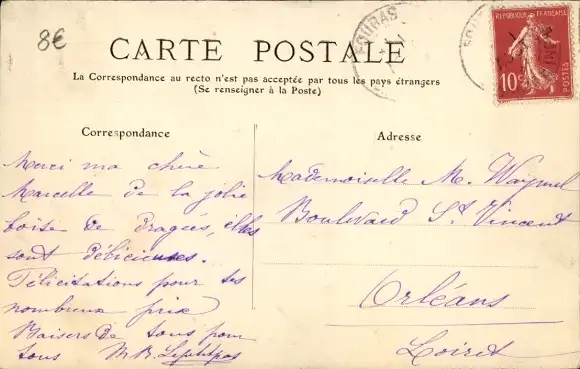 8€
CARTE POSTALE
La Correspondance au recto n'est pas acceptée par tous les pays étrangers
(Se renseigner à la Poste)
FOURAS
REPUBLIQUE FRANÇAISE
10c
POSTES
Correspondance
Merci ma chère
Marcelle de la jolie
boite de dragées, elles
sont délicieuses.
Félicitations pour tes
nombreux prix
Baisers de tous pour
tous M R
Adresse
Mademoiselle M.
Boulevard St Vincent
Orléans
Loiret